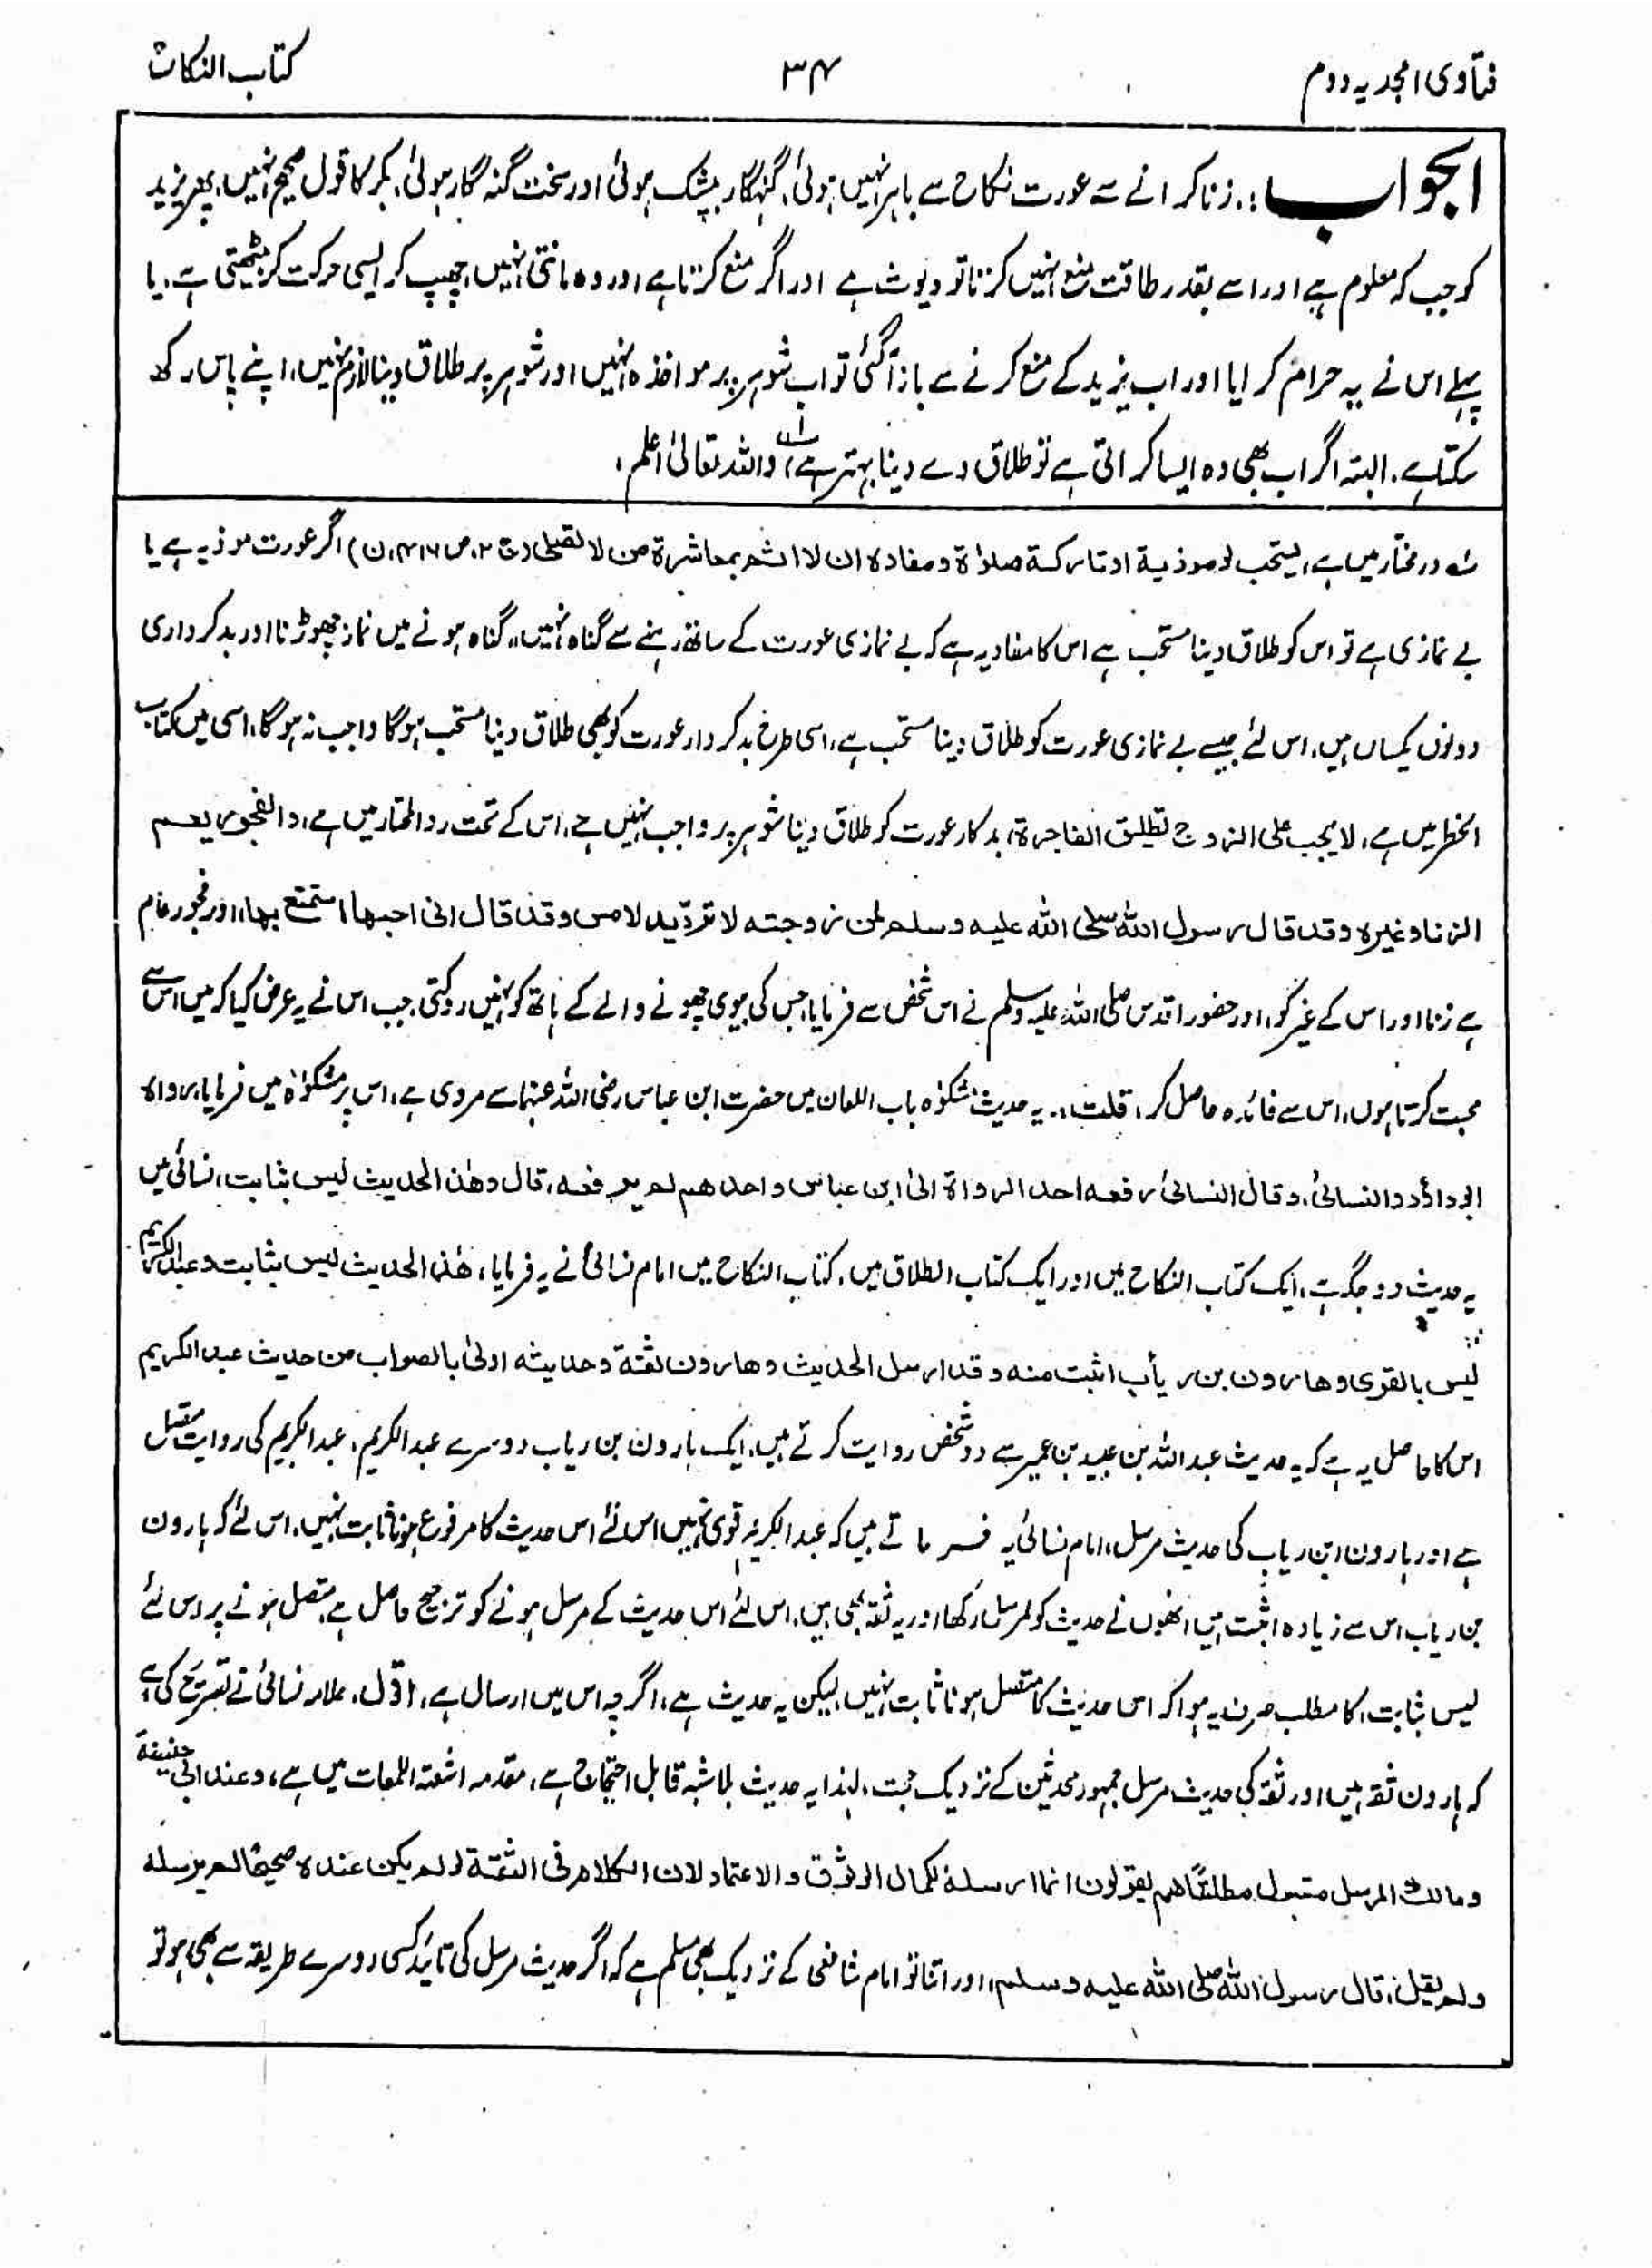 فتاوی امجدیہ دوم
۳۴
کتاب النکاح
الجواب :. زنا کرانے سے عورت نکاح سے باہر نہیں ہوئی، گنہگار بیشک ہوئی اور سخت گنہ گار ہوئی، بکر کا قول صحیح نہیں، پھر یزید
کو جب کہ معلوم ہے اور اسے بقدر طاقت منع نہیں کرتا تو دیوث ہے اور اگر منع کرتا ہے اور وہ مانتی نہیں، چھپ کر ایسی حرکت کر بیٹھتی ہے، یا
پہلے اس نے یہ حرام کرایا اور اب یزید کے منع کرنے سے باز آگئی تو اب شوہر پر مواخذہ نہیں اور شوہر پر طلاق دینا لازم نہیں، اپنے پاس رکھ
سکتا ہے. البتہ اگر اب بھی وہ ایسا کراتی ہے تو طلاق دے دینا بہتر ہے، واللہ تعالیٰ اعلم،
در مختار میں ہے، یستحب لو موذیۃ او تارکۃ صلوٰۃ ومفادہ ان لا اثم بمعاشرۃ من لا تصلی (ج ۲، ص ۴۱۶، ن) اگر عورت موذیہ ہے یا
بے نمازی ہے تو اس کو طلاق دینا مستحب ہے اس کا مفاد یہ ہے کہ بے نمازی عورت کے ساتھ رہنے سے گناہ نہیں،، گناہ ہونے میں نماز چھوڑنا اور بدکرداری
دونوں یکساں ہیں، اس لئے جیسے بے نمازی عورت کو طلاق دینا مستحب ہے، اسی طرح بدکردار عورت کو بھی طلاق دینا مستحب ہوگا واجب نہ ہوگا، اسی میں کتاب
الخطر میں ہے، لا یجب علی الزوج تطلیق الفاجرۃ، بدکار عورت کو طلاق دینا شوہر پر واجب نہیں ہے، اس کے تحت رد المحتار میں ہے، والفجور یعم
الزنا وغیرہ وقد قال رسول اللہ صلی اللہ علیہ وسلم لمن زوجتہ لا ترد ید لامس وقد قال انی احبھا استمتع بھا،، اور فجور عام
ہے زنا اور اس کے غیر کو، اور حضور اقدس صلی اللہ علیہ وسلم نے اس شخص سے فرمایا، جس کی بیوی چھونے والے کے ہاتھ کو نہیں روکتی، جب اس نے یہ عرض کیا کہ میں اس سے
محبت کرتا ہوں، اس سے فائدہ حاصل کر، قلت،.. یہ حدیث مشکوٰہ باب اللعان میں حضرت ابن عباس رضی اللہ عنہما سے مروی ہے، اس پر مشکوٰۃ میں فرمایا، رواہ
ابو داؤد والنسائی، وقال النسائی رفعہ احد الرواۃ الیٰ ابن عباس واحدھم لم یرفعہ، قال وھٰذ الحدیث لیس بثابت، نسائی میں
یہ حدیث دو جگہ ہے، ایک کتاب النکاح میں اور ایک کتاب الطلاق میں، کتاب النکاح میں امام نسائی نے یہ فرمایا، ھٰذا الحدیث لیس بثابت وعبد الکریم
لیس بالقوی وھارون بن ریأب اثبت منہ وقد ارسل الحدیث وھارون ثقۃ وحدیثہ اولیٰ بالصواب من حدیث عبد الکریم
اس کا حاصل یہ ہے کہ یہ حدیث عبد اللہ بن عبید بن عمیر سے دو شخص روایت کرتے ہیں، ایک ہارون بن ریاب دوسرے عبد الکریم، عبد الکریم کی روایت متصل
ہے اور ہارون ابن ریاب کی حدیث مرسل، امام نسائی یہ فرماتے ہیں کہ عبد الکریم قوی نہیں اس لئے اس حدیث کا مرفوع ہونا ثابت نہیں، اس لئے کہ ہارون
بن ریاب اس سے زیادہ اثبت ہیں انھوں نے حدیث کو مرسل رکھا اور یہ ثقہ بھی ہیں، اس لئے اس حدیث کے مرسل ہونے کو ترجیح حاصل ہے متصل ہونے پر اس لئے
لیس بثابت، کا مطلب صرف یہ ہوا کہ اس حدیث کا متصل ہونا ثابت نہیں، لیکن یہ حدیث ہے، اگرچہ اس میں ارسال ہے، اقول، علامہ نسائی نے تصریح کی ہے
کہ ہارون ثقہ ہیں اور ثقہ کی حدیث مرسل جمہور محدثین کے نزدیک حجت، لہٰذا یہ حدیث بلاشبہ قابل احتجاج ہے، مقدمہ اشعۃ اللمعات میں ہے، وعند ابی حنیفۃ
ومالک المرسل مقبول مطلقًا ھم یقولون انما ارسلہ لکمال الوثوق والاعتماد لان الکلام فی الثقۃ لو لم یکن عندہ صحیحًا لم یرسلہ
ولم یقل، قال رسول اللہ صلی اللہ علیہ وسلم، اور اتنا تو امام شافعی کے نزدیک بھی مسلم ہے کہ اگر حدیث مرسل کی تائید کسی دوسرے طریقہ سے بھی ہو تو